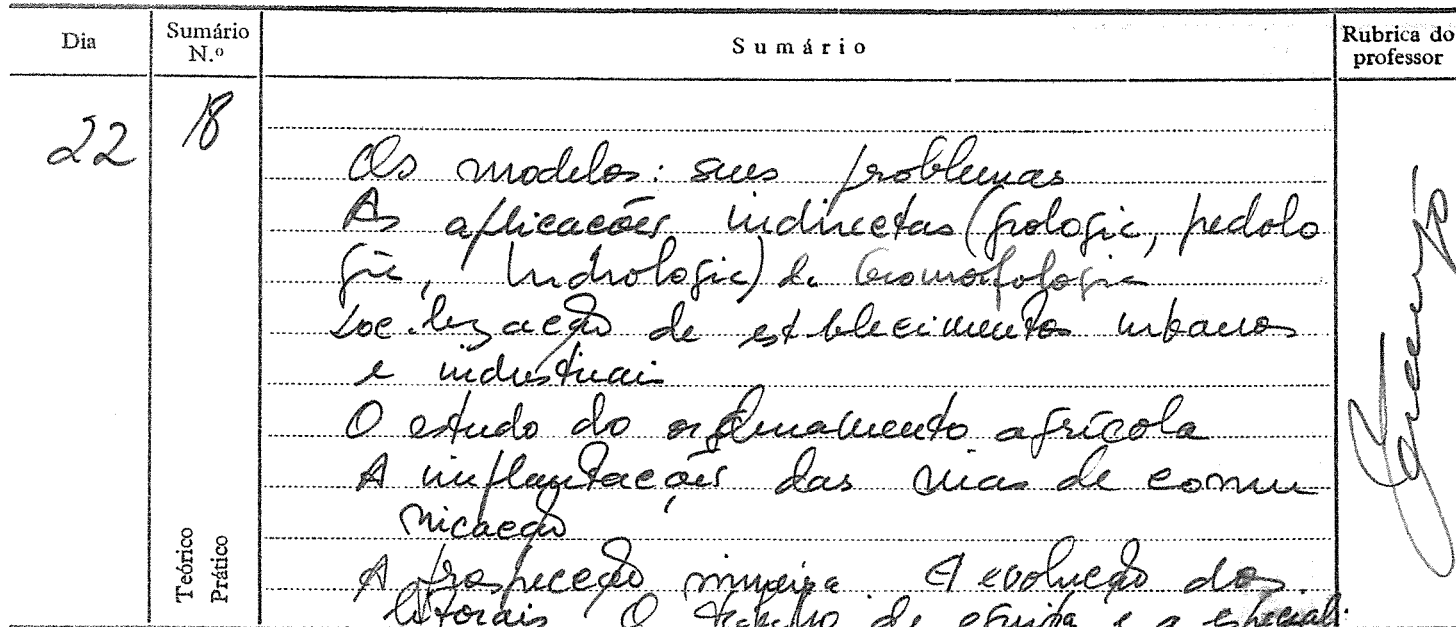 Dia
Sumário N.º
Sumário
Rubrica do professor
22
18
Os modelos: seus problemas
As aplicações indirectas (geologia, pedolo
gia, hidrologia) da Geomorfologia
Localização de estabelecimentos urbanos
e industriais
O estudo do ordenamento agrícola
A implantações das vias de comu
nicação
A prospecção mineira A evolução dos
litorais O trabalho de equipa e a especiali
Teórico
Prático